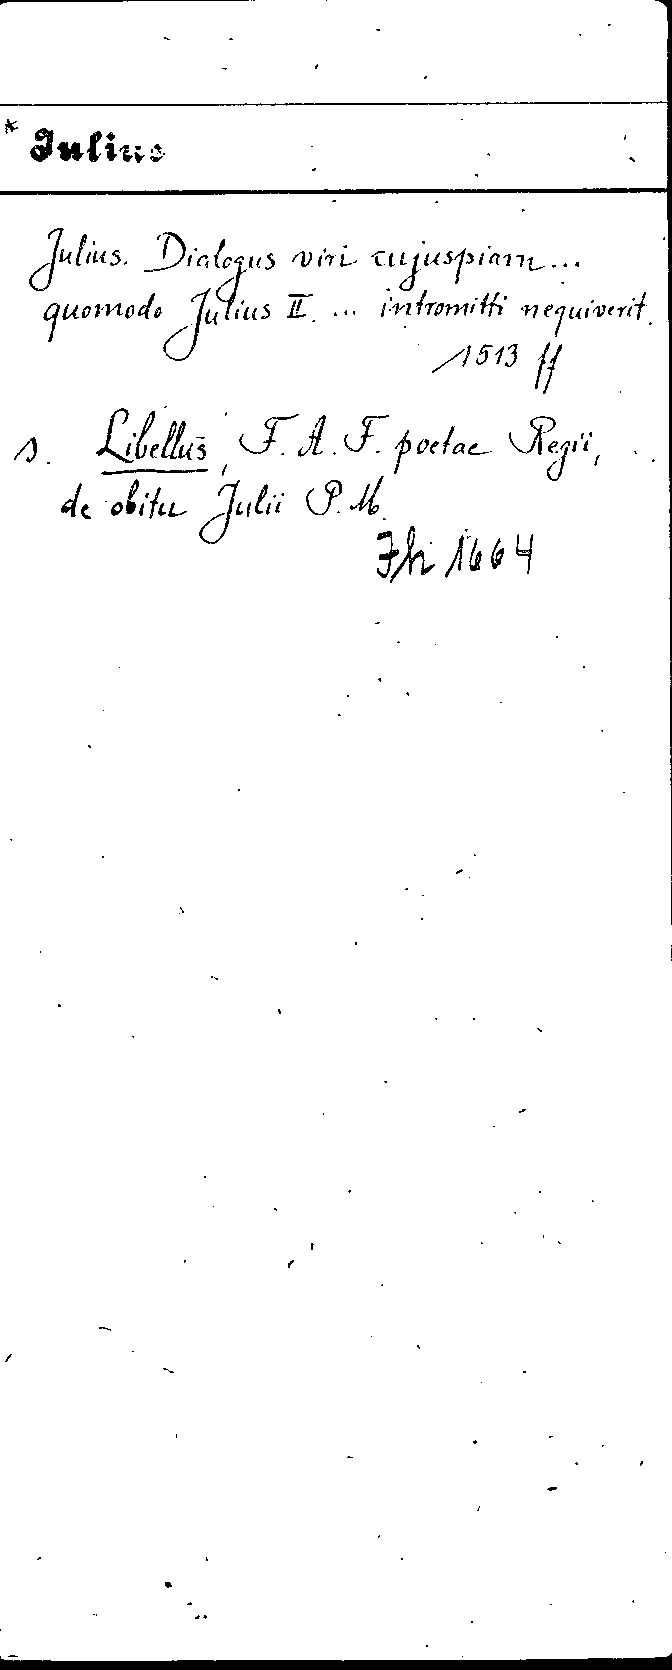 * Julius
Julius. Dialogus viri cujuspiam...
quomodo Julius II. ... intromitti nequiverit.
1513 ff
s. Libellus, F. A. F. poetae Regii, ..
de obitu Julii P. M.
Fh 1664